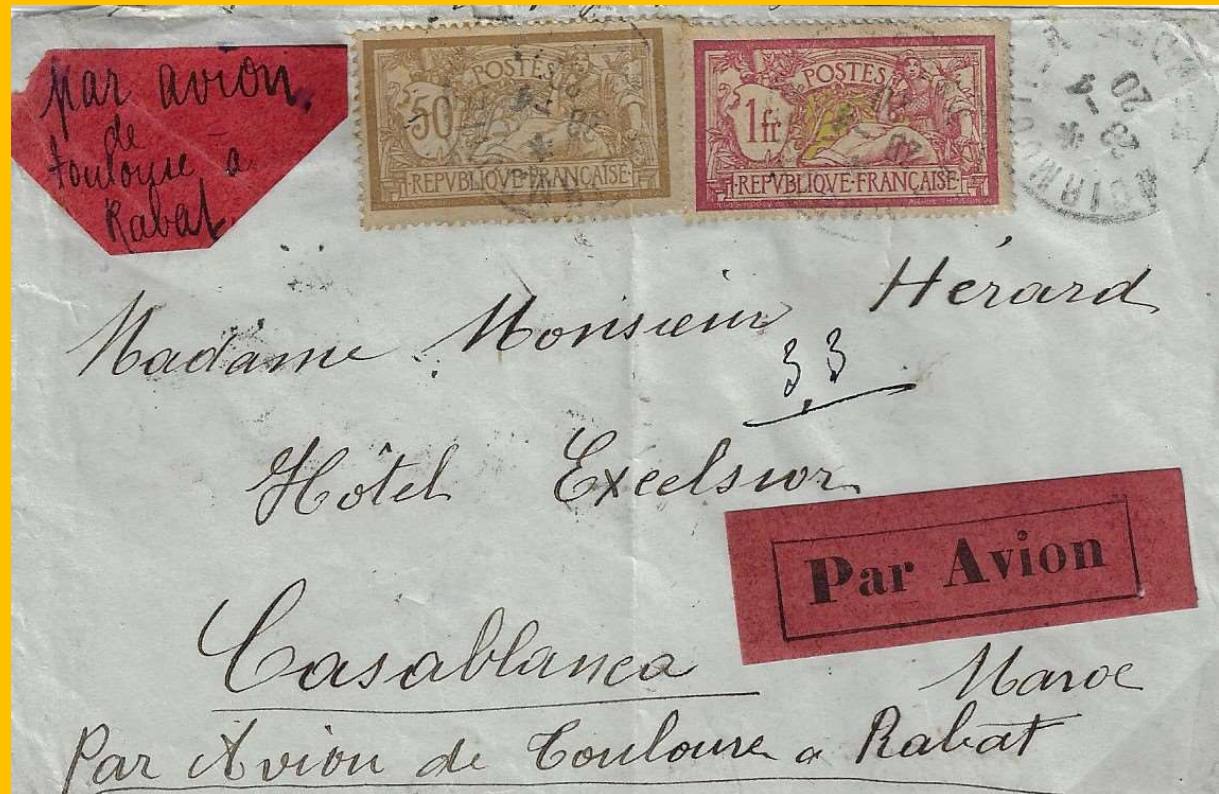 par avion
de
toulouse a
Rabat
50
POSTES
REPVBLIQVE·FRANÇAISE
1fr
POSTES
REPVBLIQVE·FRANÇAISE
23 - 4
20
Madame Monsieur Hérard
33
Hôtel Excelsior
Par Avion
Casablanca Maroc
Par Avion de Toulouse a Rabat